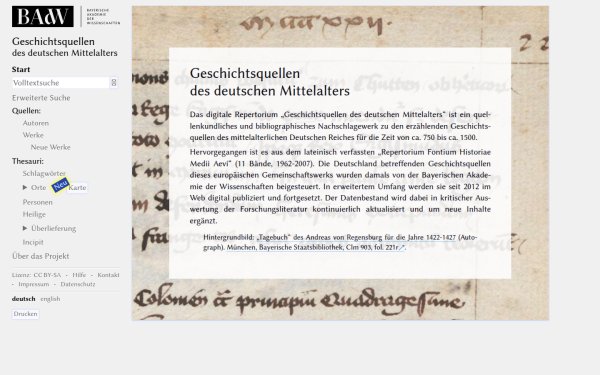 BAdW
BAYERISCHE
AKADEMIE
DER
WISSENSCHAFTEN
Geschichtsquellen
des deutschen Mittelalters
Start
Volltextsuche
Erweiterte Suche
Quellen:
Autoren
Werke
Neue Werke
Thesauri:
Schlagwörter
▶ Orte Neu Karte
Personen
Heilige
▶ Überlieferung
Incipit
Über das Projekt
Lizenz: CC BY-SA - Hilfe - Kontakt
- Impressum - Datenschutz
deutsch english
Drucken
Geschichtsquellen
des deutschen Mittelalters
Das digitale Repertorium „Geschichtsquellen des deutschen Mittelalters“ ist ein quel-
lenkundliches und bibliographisches Nachschlagewerk zu den erzählenden Geschichts-
quellen des mittelalterlichen Deutschen Reiches für die Zeit von ca. 750 bis ca. 1500.
Hervorgegangen ist es aus dem lateinisch verfassten „Repertorium Fontium Historiae
Medii Aevi“ (11 Bände, 1962-2007). Die Deutschland betreffenden Geschichtsquellen
dieses europäischen Gemeinschaftswerks wurden damals von der Bayerischen Akade-
mie der Wissenschaften beigesteuert. In erweitertem Umfang werden sie seit 2012 im
Web digital publiziert und fortgesetzt. Der Datenbestand wird dabei in kritischer Aus-
wertung der Forschungsliteratur kontinuierlich aktualisiert und um neue Inhalte
ergänzt.
Hintergrundbild: „Tagebuch“ des Andreas von Regensburg für die Jahre 1422-1427 (Auto-
graph). München, Bayerische Staatsbibliothek, Clm 903, fol. 221r